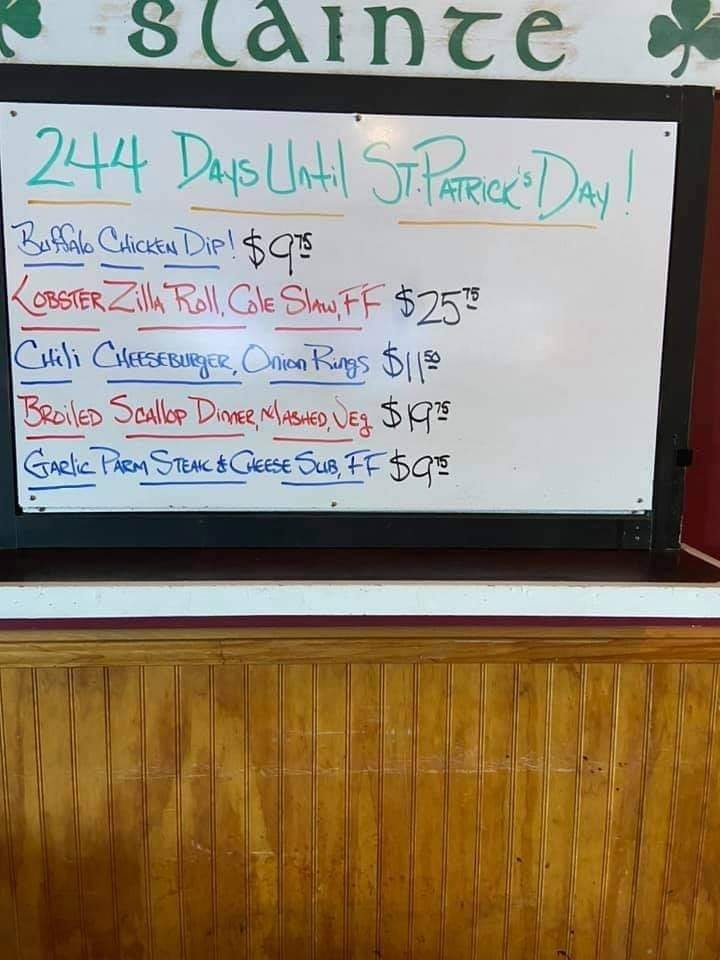 Sláinte
244 Days Until St. Patrick's Day!
Buffalo Chicken Dip! $9.75
Lobster Zilla Roll, Cole Slaw, FF $25.75
Chili Cheeseburger, Onion Rings $11.50
Broiled Scallop Dinner, Mashed, Veg $19.75
Garlic Parm Steak & Cheese Sub, FF $9.75